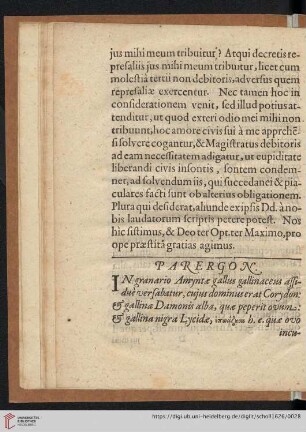 jus mihi meum tribuitur? Atqui decretis re-
presaliis jus mihi meum tribuitur, licet cum
molestiâ tertii non debitoris, adversus quem
represaliæ exercentur. Nec tamen hoc in
considerationem venit, sed illud potius at-
tenditur, ut quod exteri odio mei mihi non
tribuunt, hoc amore civis sui à me apprehē-
si solvere cogantur, & Magistratus debitoris
ad eam necessitatem adigatur, ut cupiditate
liberandi civis insontis, sontem condem-
net, ad solvendum iis, qui succedanei & pia-
culares facti sunt ob alterius obligationem.
Plura qui desiderat, aliunde ex ipsis Dd. à no-
bis laudatorum scriptis petere potest. Nos
hîc sistimus, & Deo ter Opt. ter Maximo, pro
ope præstitâ gratias agimus.
PARERGON.
IN granario Amyntæ gallus gallinaceus assi-
duè versabatur, cujus dominus erat Corydon:
& gallina Damonis alba, quæ peperit ovum:
& gallina nigra Lycidæ, h. e. quæ ovo
incu-
UNIVERSITÄTS-
BIBLIOTHEK
HEIDELBERG
https://digi.ub.uni-heidelberg.de/diglit/scholl1626/0028